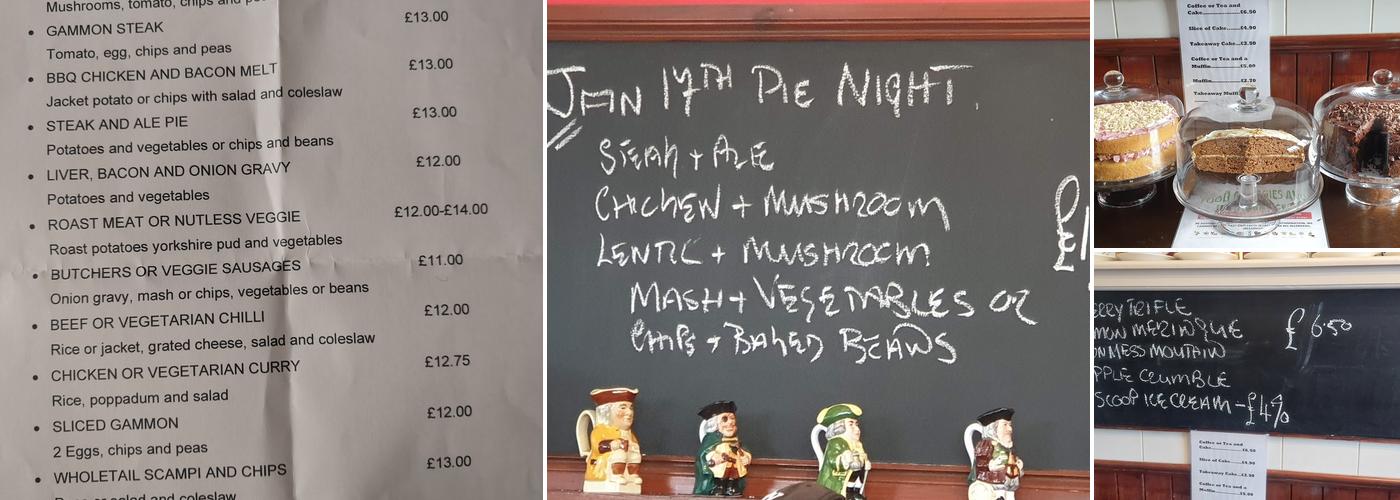 Mushrooms, tomato, chips and
GAMMON STEAK £13.00
Tomato, egg, chips and peas
BBQ CHICKEN AND BACON MELT £13.00
Jacket potato or chips with salad and coleslaw
STEAK AND ALE PIE £13.00
Potatoes and vegetables or chips and beans
LIVER, BACON AND ONION GRAVY £12.00
Potatoes and vegetables
ROAST MEAT OR NUTLESS VEGGIE £12.00-£14.00
Roast potatoes yorkshire pud and vegetables
BUTCHERS OR VEGGIE SAUSAGES £11.00
Onion gravy, mash or chips, vegetables or beans
BEEF OR VEGETARIAN CHILLI £12.00
Rice or jacket, grated cheese, salad and coleslaw
CHICKEN OR VEGETARIAN CURRY £12.75
Rice, poppadum and salad
SLICED GAMMON £12.00
2 Eggs, chips and peas
WHOLETAIL SCAMPI AND CHIPS £13.00
salad and coleslaw
JAN 17TH PIE NIGHT.
STEAK + ALE
CHICKEN + MUSHROOM
LENTIL + MUSHROOM
MASH + VEGETABLES OR
CHIPS + BAKED BEANS
£1
Coffee or Tea and
Cake..........£6.50
Slice of Cake....£4.90
Takeaway Cake..£3.50
Coffee or Tea and a
Muffin..........£5.00
Muffin..........£2.70
Takeaway Muff
ERRY TRIFLE
MON MERINGUE £6.50
ON MESS MOUTAIN
PPLE CRUMBLE
SCOOP ICE CREAM - £4.90
Coffee or Tea and
Cake..........£6.50
Slice of Cake....£4.90
Takeaway Cake..£3.50
Coffee or Tea and a
Muffin..........£5.00